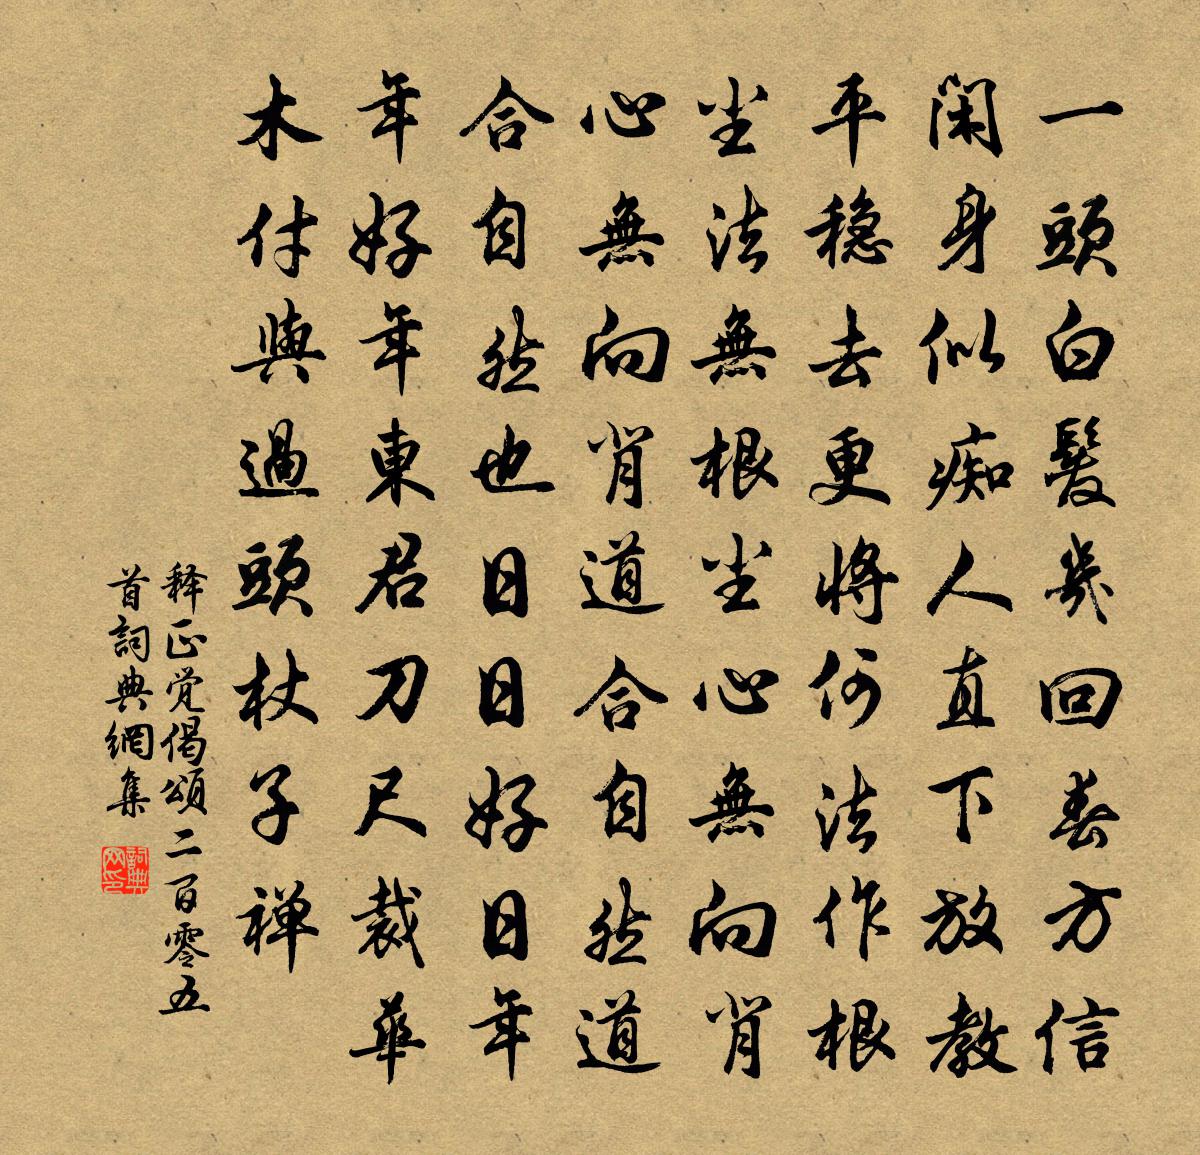 一頭白髮幾回春方信
閑身似痴人直下放教
平穏去更將何法作根
塵法無根塵心無向背
心無向背道合自然道
合自然也日日好日年
年好年東君刀尺裁華
木付與過頭杖子禅
释正觉偈頌二百零五
首詞典網集
詞典网印